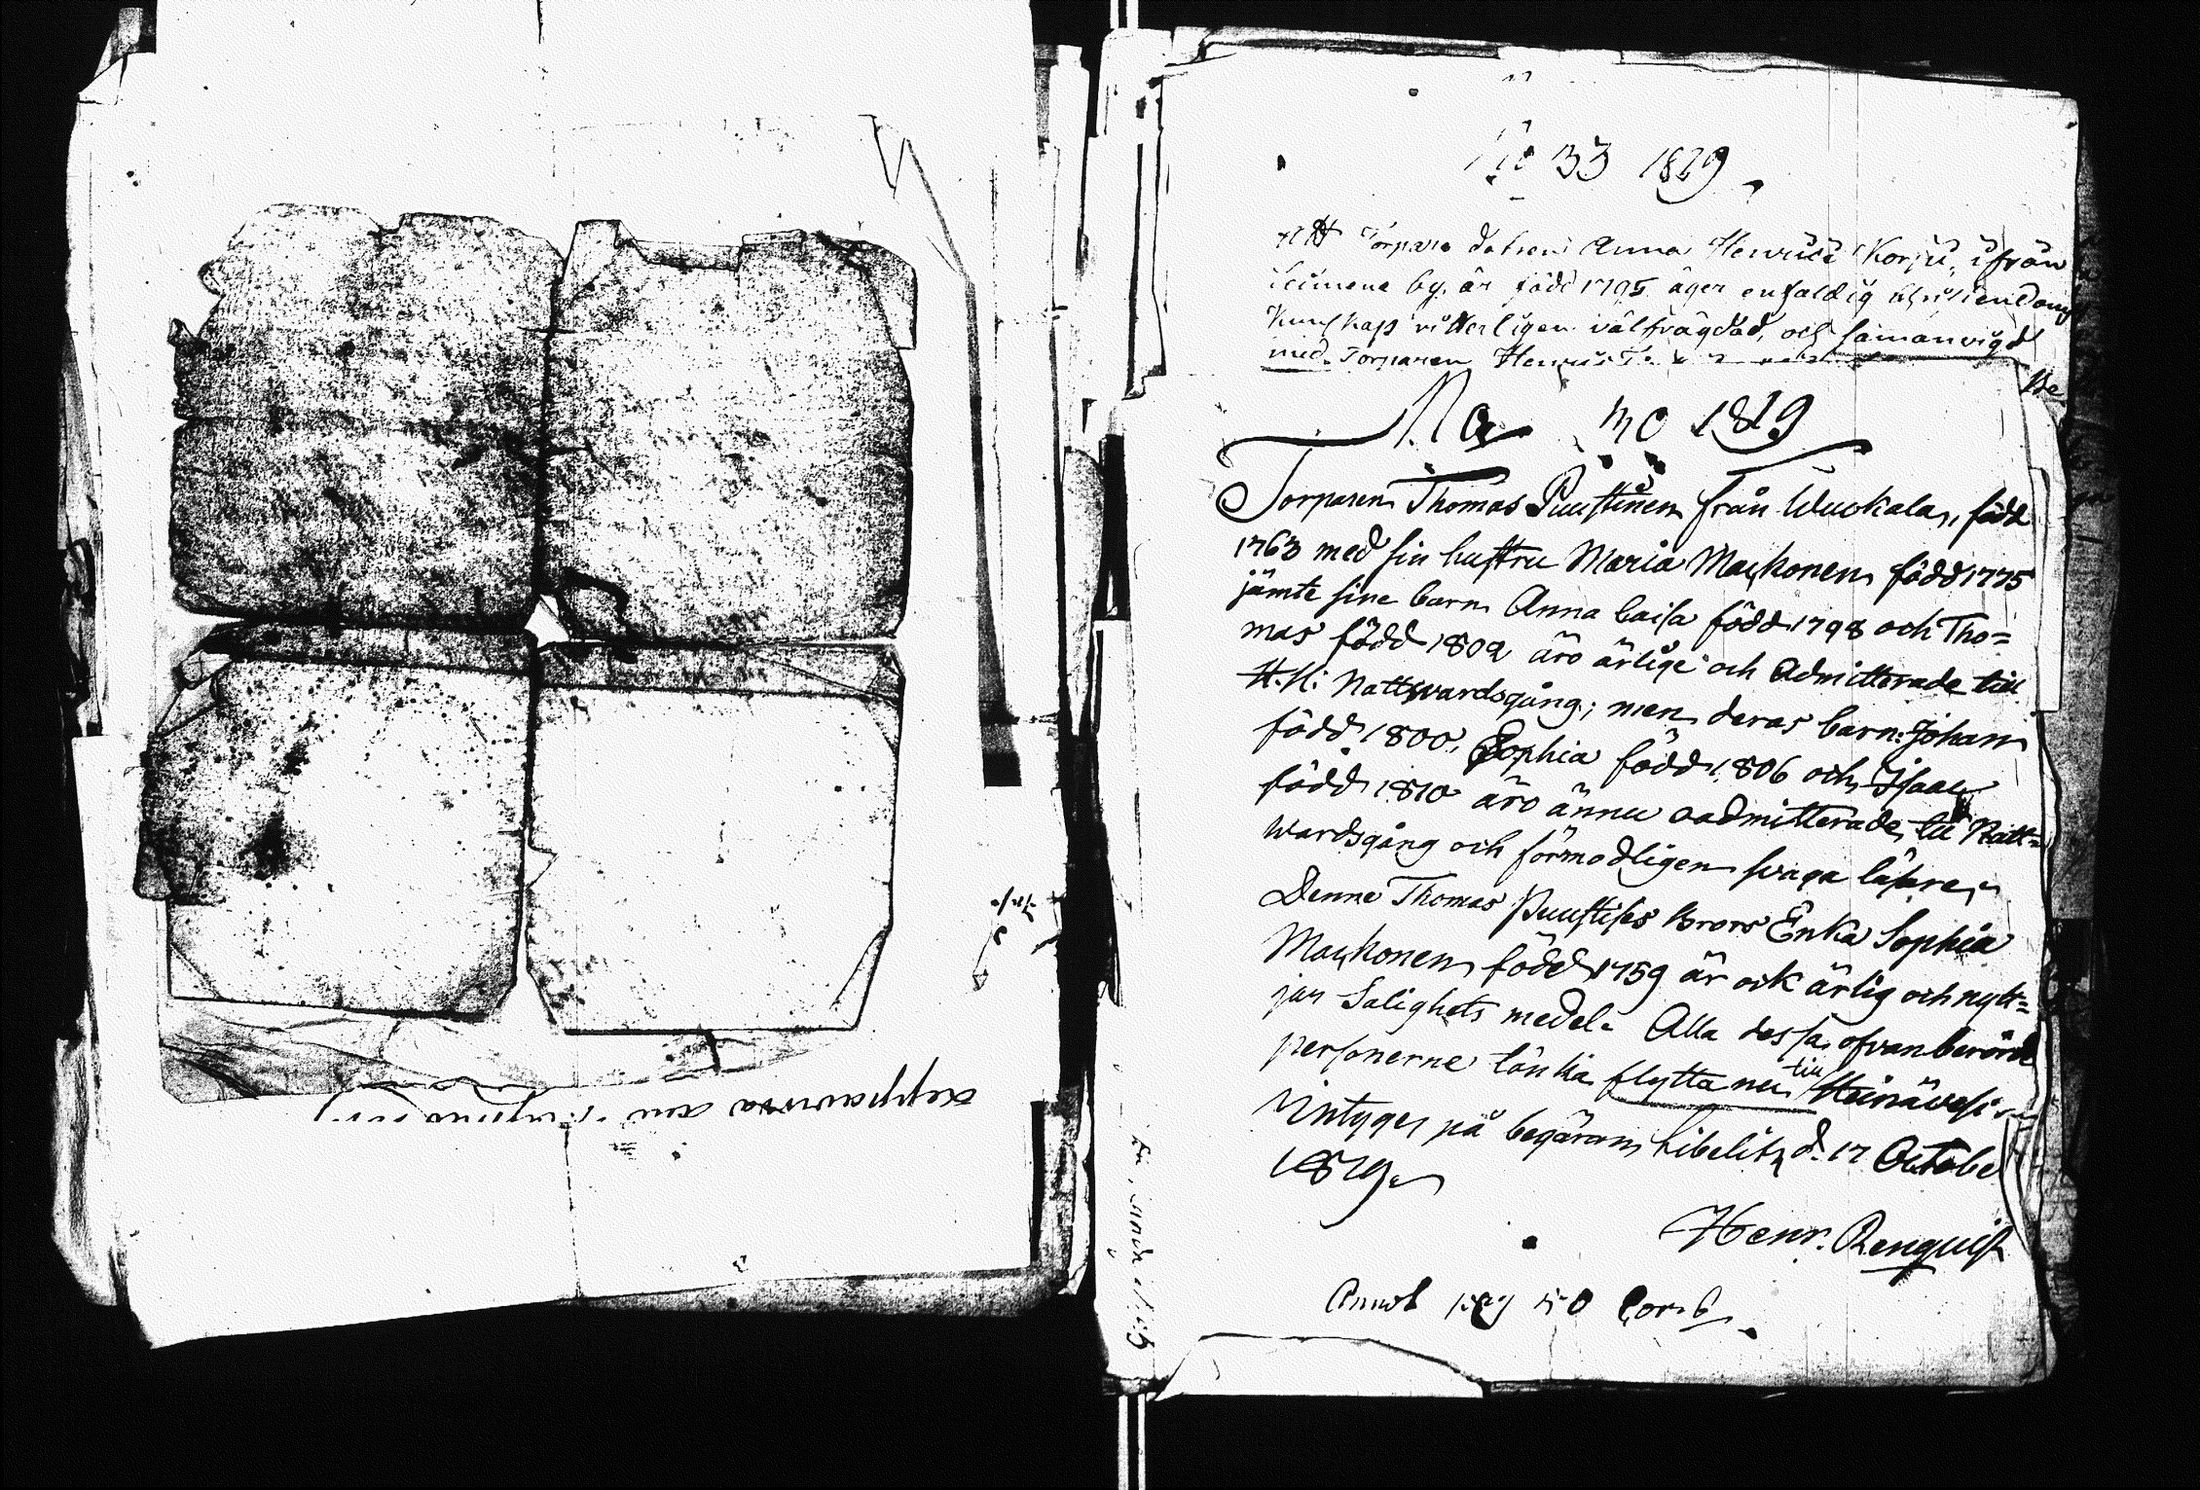 No 33 1829
Att Torpare dotren Anna Henrics Korju, ifrån
by, är född 1795 äger enfaldig christendoms
kunskap witterligen välfrägdad, och samanvigd
med Torparen Henric
No 30 1819
Torparen Thomas Puustinen från Wuokala, född
1763 med sin hustru Maria Maukonen född 1775
jämte sine barn Anna Caisa född 1798 och Tho=
mas född 1802 äro ärlige och Admitterade till
H.H. Nattwardsgång; men deras barn: Johan
född 1800, Sophia född 1806 och Isaac
född 1810 äro ännu oadmitterade till Natt=
wardsgång och förmodligen svaga läsare,
Denne Thomas Puustises Brors Enka Sophia
Maukonen född 1759 är ock ärlig och nytt=
jar Salighets medel. Alla dessa ofvanberörde
personerne tänka flytta nu till Heinäwesi
Intyger på begäran Libelitz d. 17 Octobe
1819.
Henr. Renquist